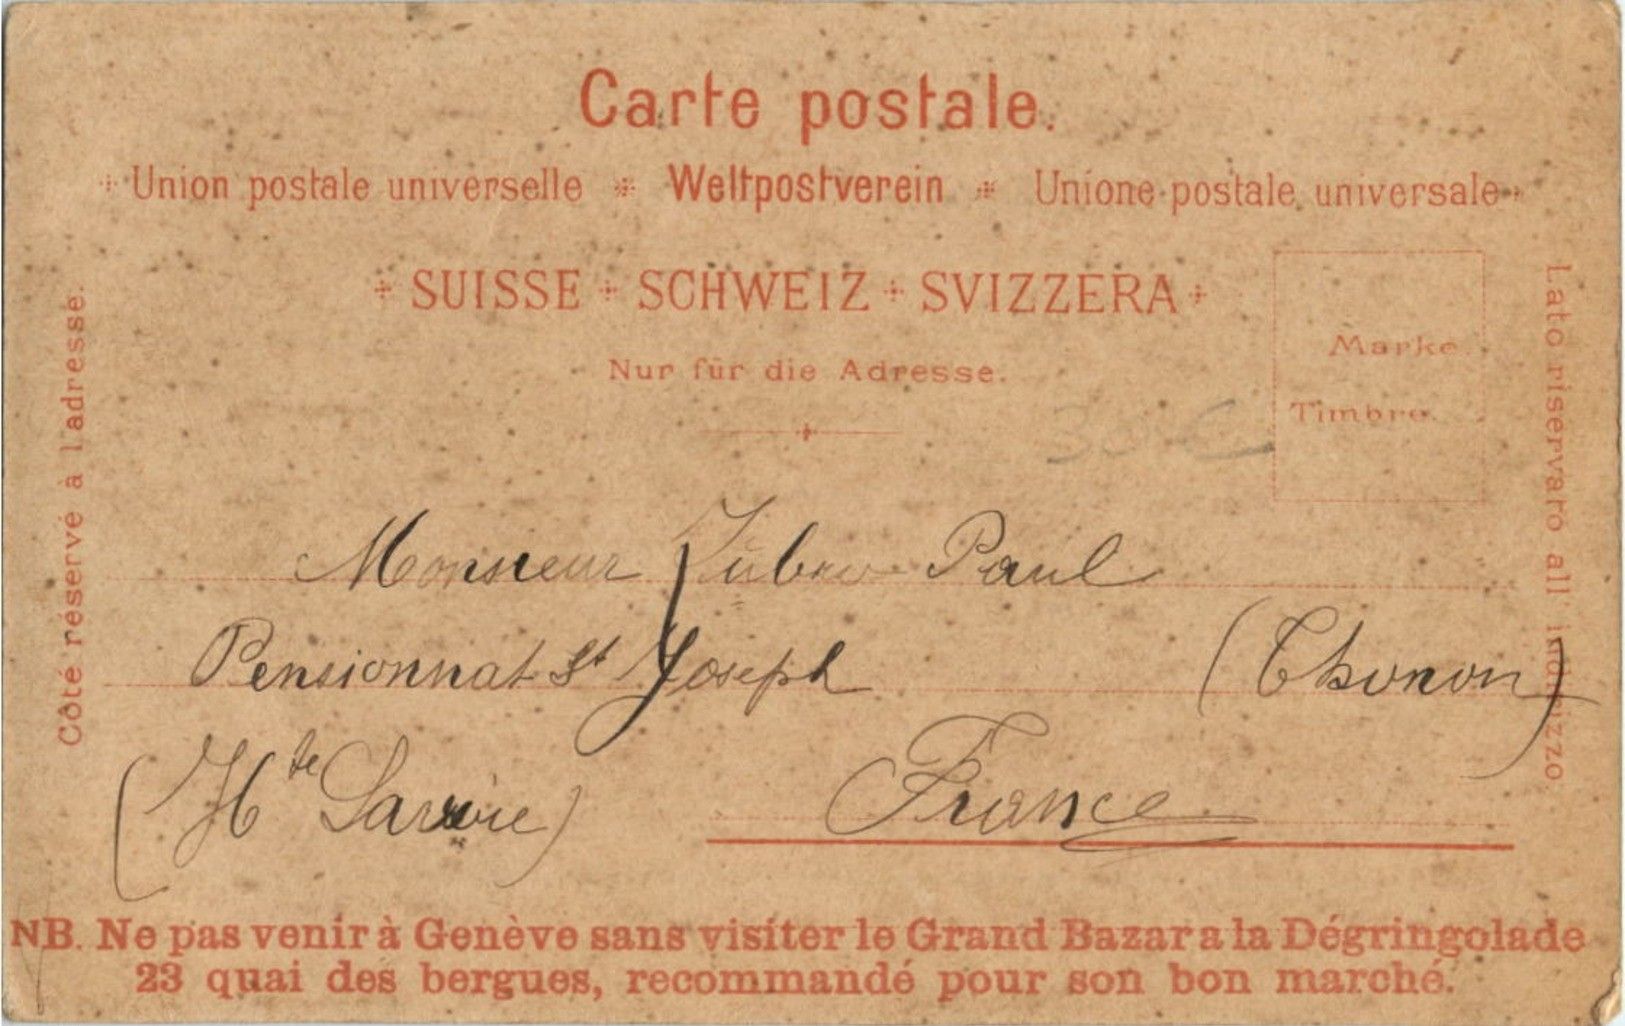 Carte postale.
Union postale universelle Weltpostverein Unione postale universale
SUISSE SCHWEIZ SVIZZERA
Nur für die Adresse.
Marke.
Timbre.
Côté réservé à l'adresse.
Lato riservato all' indirizzo
Monsieur Paul
Pensionnat St Joseph (Thonon)
(Hte Savoie) France
NB. Ne pas venir à Genève sans visiter le Grand Bazar a la Dégringolade
23 quai des bergues, recommandé pour son bon marché.